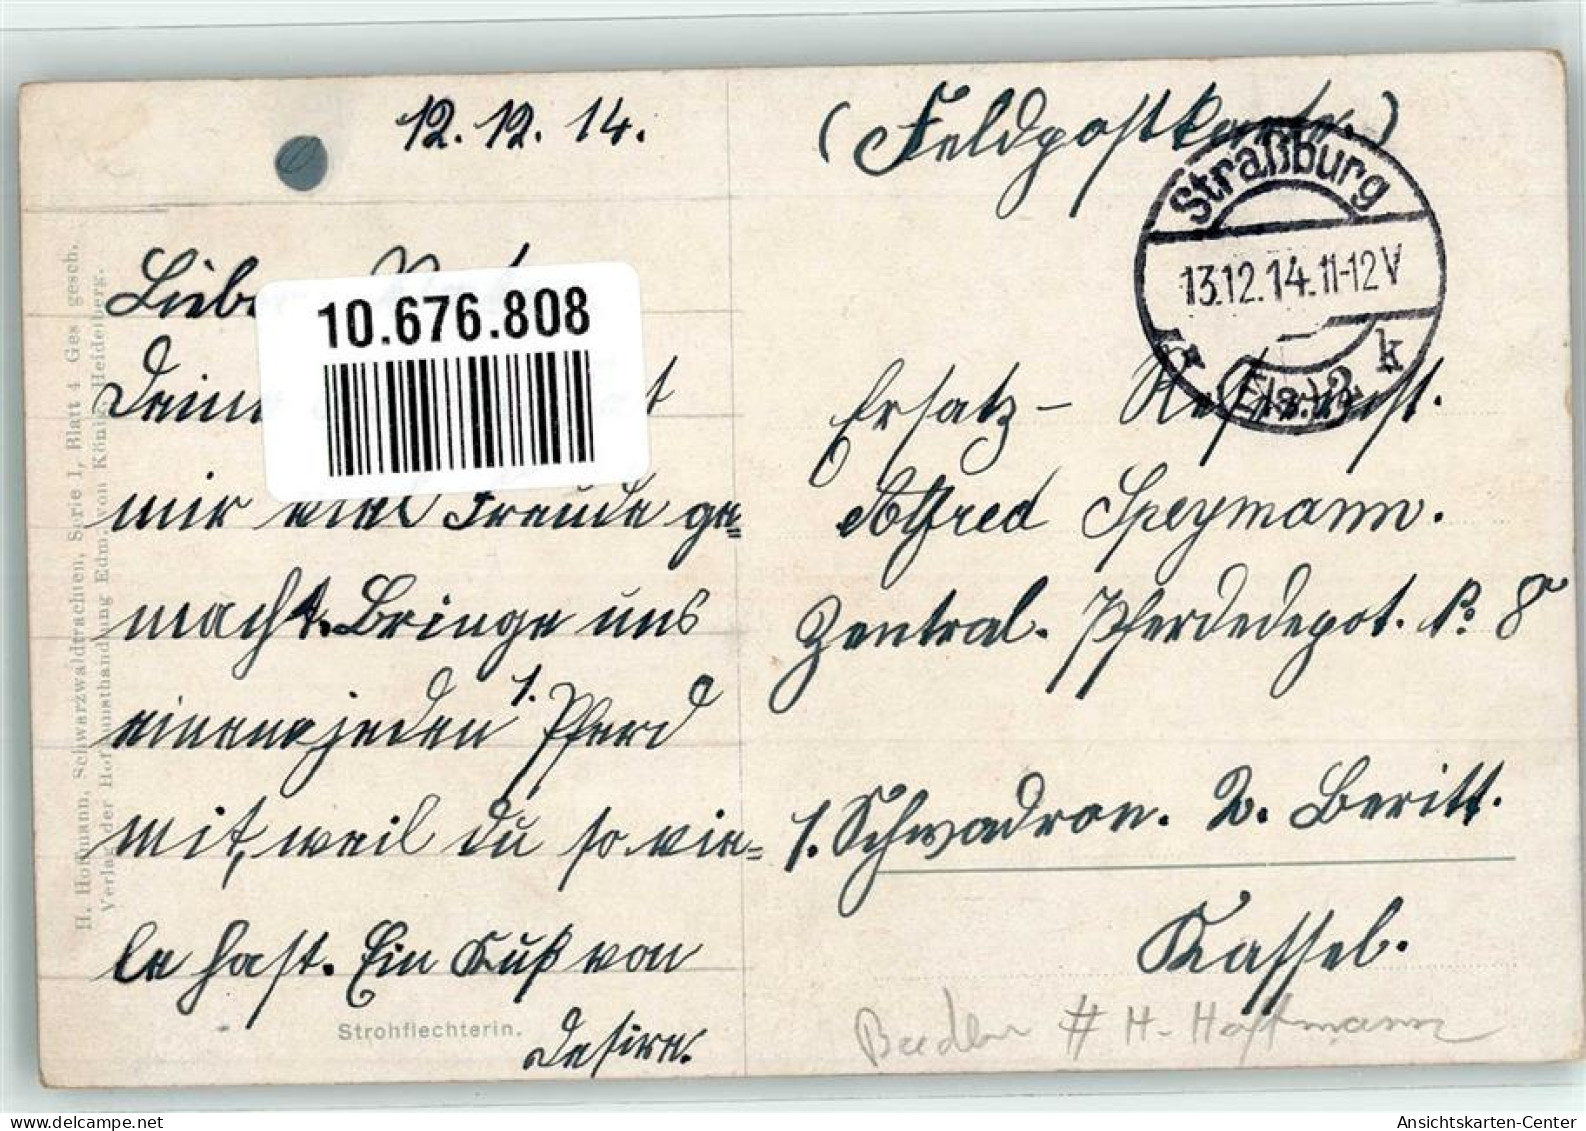 12.12.14.
(Feldpostkarte.)
Straßburg
13.12.14.11-12V
k
(Els.) 2
Lieber
10.676.808
mir viel Freude ge=
macht. Bringe uns
einem jeden 1. Pferd
mit, weil du so vie=
le hast. Ein Kuß von
Desire.
Ersatz-Reservist.
Alfred Speymann.
Zentral. Pferdedepot. No 8
1. Schwadron. 2. Beritt.
Kassel.
H. Hoffmann, Schwarzwaldtrachten, Serie I, Blatt 4 Ges. gesch.
Verlag der Hofkunsthandlung Edm. von König, Heidelberg.
Strohflechterin.
# H. Hoffmann
Ansichtskarten-Center